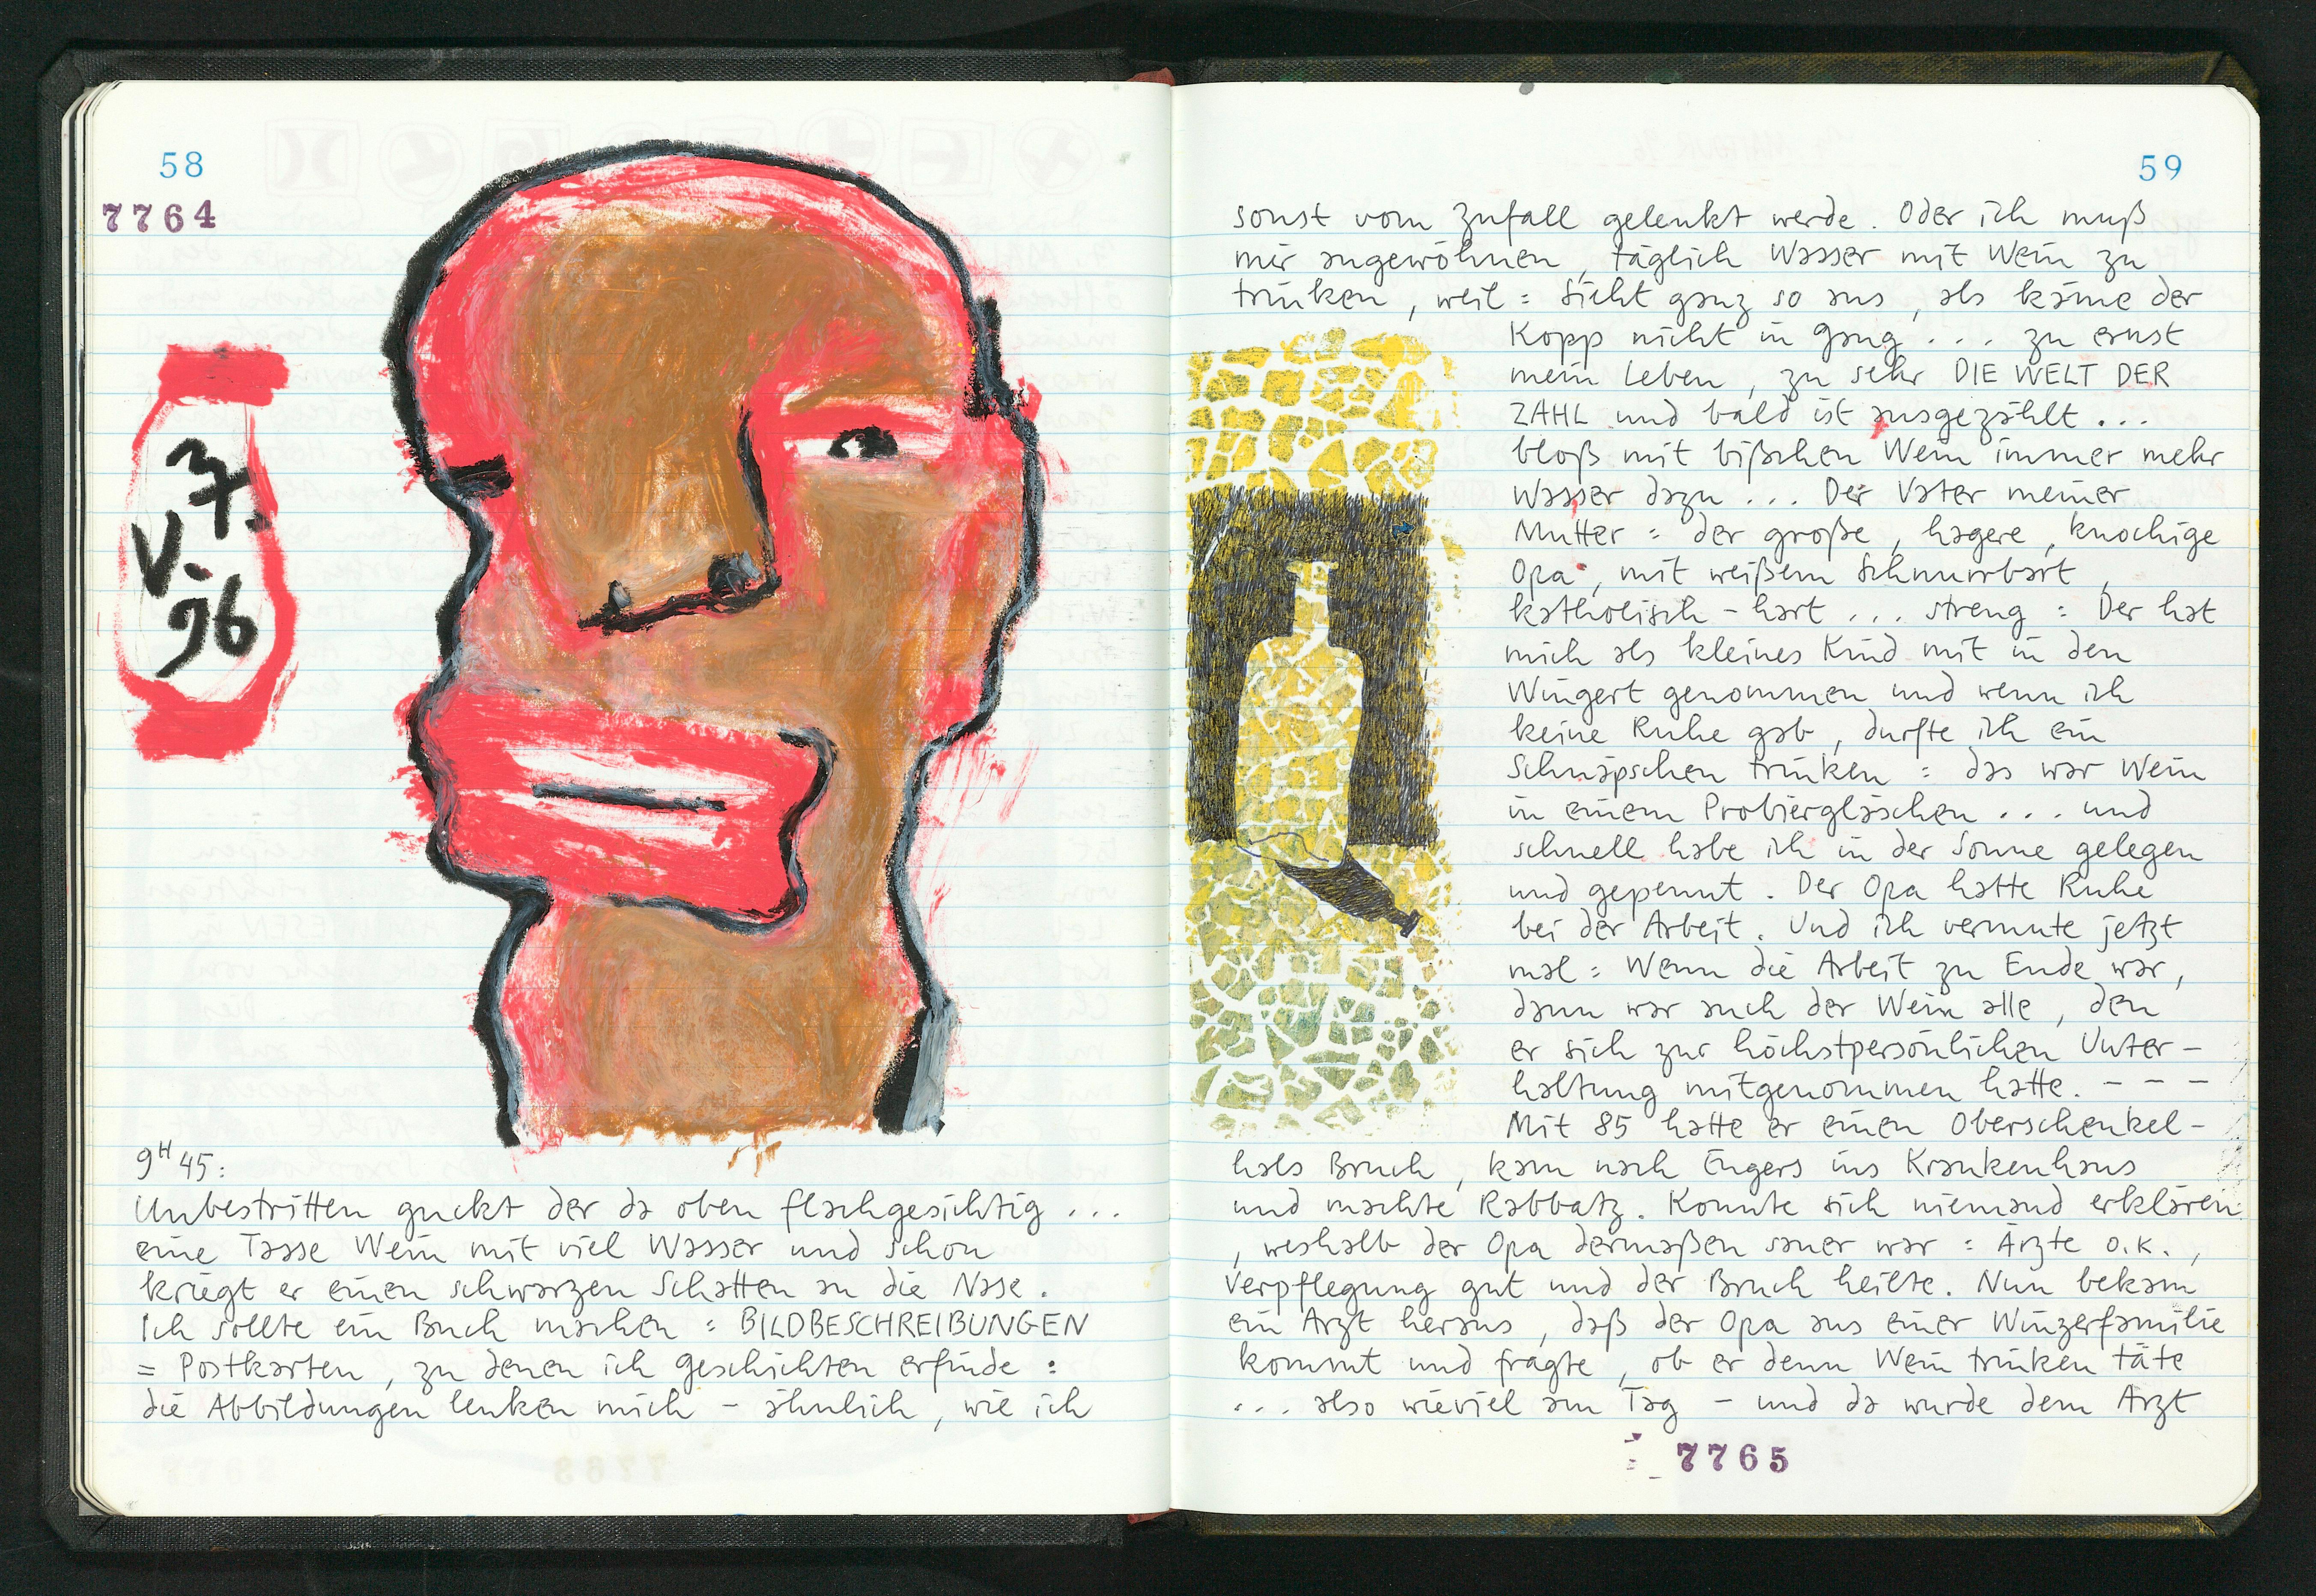 58
7764
37.
V.
96
9H 45:
Unbestritten guckt der da oben flachgesichtig ...
eine Tasse Wein mit viel Wasser und schon
kriegt er einen schwarzen Schatten an die Nase.
Ich sollte ein Buch machen : BILDBESCHREIBUNGEN
= Postkarten, zu denen ich Geschichten erfinde :
die Abbildungen lenken mich - ähnlich, wie ich
59
sonst vom Zufall gelenkt werde. Oder ich muß
mir angewöhnen, täglich Wasser mit Wein zu
trinken, weil : Sieht ganz so aus, als käme der
Kopp nicht in Gang ... zu ernst
mein Leben, zu sehr DIE WELT DER
ZAHL und bald ist ausgezählt ...
bloß mit bißchen Wein immer mehr
Wasser dazu ... Der Vater meiner
Mutter : der große, hagere, knochige
Opa, mit weißem Schnurrbart,
katholisch - hart ... streng : Der hat
mich als kleines Kind mit in den
Wingert genommen und wenn ich
keine Ruhe gab, durfte ich ein
Schnäpschen trinken : das war Wein
in einem Probiergläschen ... und
schnell habe ich in der Sonne gelegen
und gepennt. Der Opa hatte Ruhe
bei der Arbeit. Und ich vermute jetzt
mal : Wenn die Arbeit zu Ende war,
dann war auch der Wein alle, den
er sich zur höchstpersönlichen Unter-
haltung mitgenommen hatte. - - -
Mit 85 hatte er einen Oberschenkel-
hals Bruch, kam nach Engers ins Krankenhaus
und machte Rabbatz. Konnte sich niemand erklären
, weshalb der Opa dermaßen sauer war : Ärzte o.k.,
Verpflegung gut und der Bruch heilte. Nun bekam
ein Arzt heraus, daß der Opa aus einer Winzerfamilie
kommt und fragte, ob er denn Wein trinken täte
... also wieviel am Tag - und da wurde dem Arzt
7765